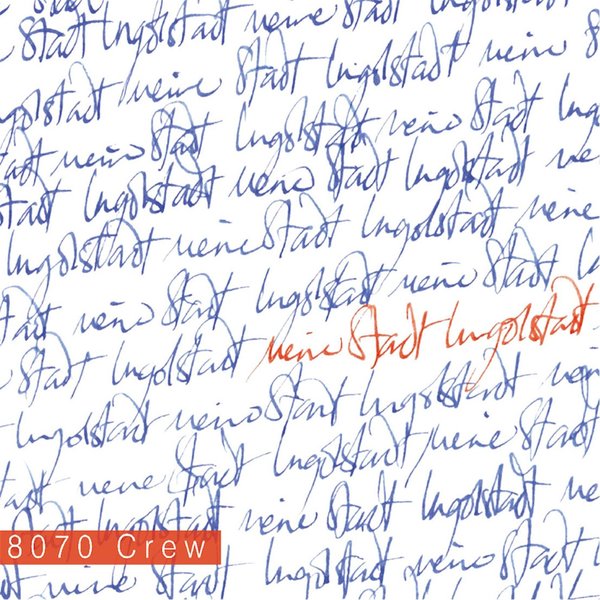 Stadt Ingolstadt meine Stadt
Ingolstadt meine Stadt Ingolstadt meine S
Stadt meine Stadt Ingolstadt meine Stadt Ing
Stadt Ingolstadt meine Stadt Ingolstadt me
Ingolstadt meine Stadt Ingolstadt meine
Stadt meine Stadt Ingolstadt meine Stadt In
Stadt Ingolstadt meine Stadt Ingolstadt
Ingolstadt meine Stadt Ingolstadt meine
Stadt meine Stadt Ingolstadt meine Stadt
Stadt Ingolstadt meine Stadt Ingolstadt me
8070 Crew
dt meine Stadt Ingolstadt meine Stadt